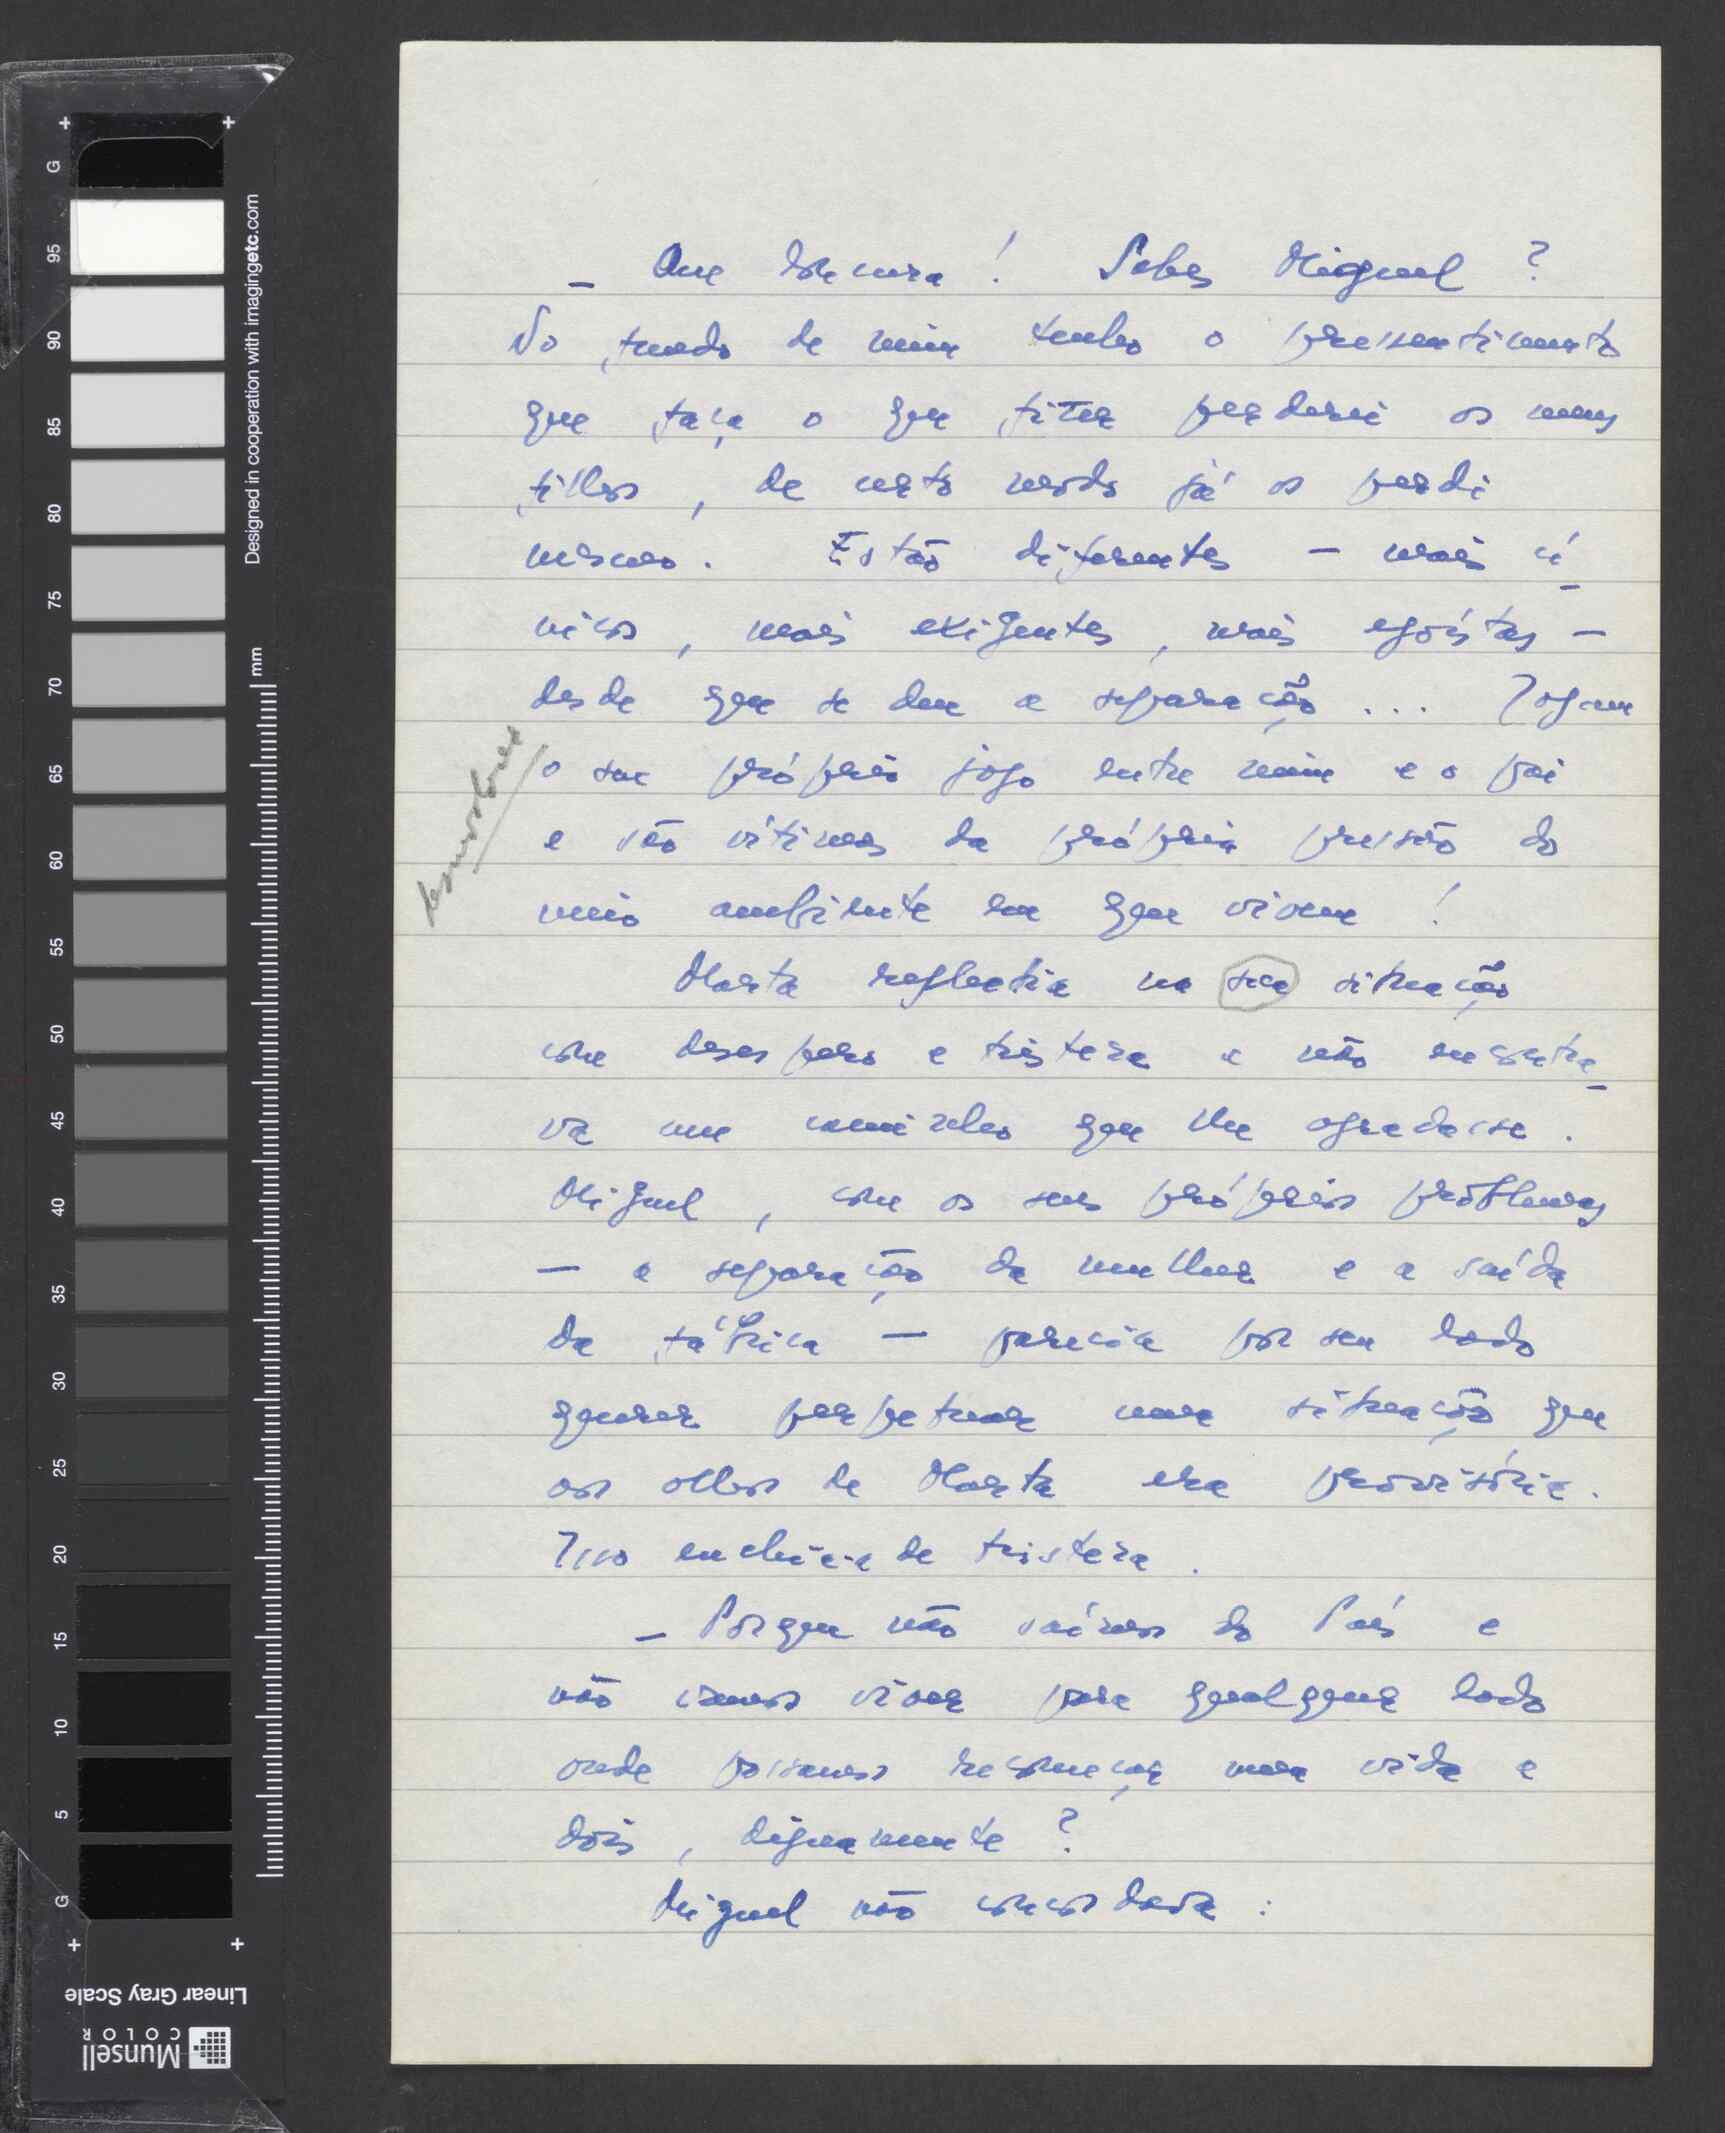 – Que loucura! Sabes Miguel?
No fundo de mim tenho o pressentimento
que faça o que fizer perderei os meus
filhos, de certo modo já os perdi
mesmo. Estão diferentes – mais cí-
nicos, mais exigentes, mais egoístas –
desde que se deu a separação... Jogam
o seu próprio jogo entre mim e o pai
e são vítimas da própria pressão do
meio ambiente em que vivem!
desenvolver
Marta reflectia na sua situação
com desespero e tristeza e não encontra-
va um caminho que lhe agradasse.
Miguel, com os seus próprios problemas
– a separação da mulher e a saída
da fábrica – parecia por seu lado
querer perpetuar uma situação que
aos olhos de Marta era provisória.
Isso enchia-a de tristeza.
– Porque não saímos do País e
não vamos viver para qualquer lado
onde possamos recomeçar uma vida a
dois, dignamente?
Miguel não concordava:
G
95
90
85
80
75
70
65
60
55
50
45
40
35
30
25
20
15
10
5
G
mm
Designed in cooperation with imagingetc.com
Linear Gray Scale
Munsell
COLOR